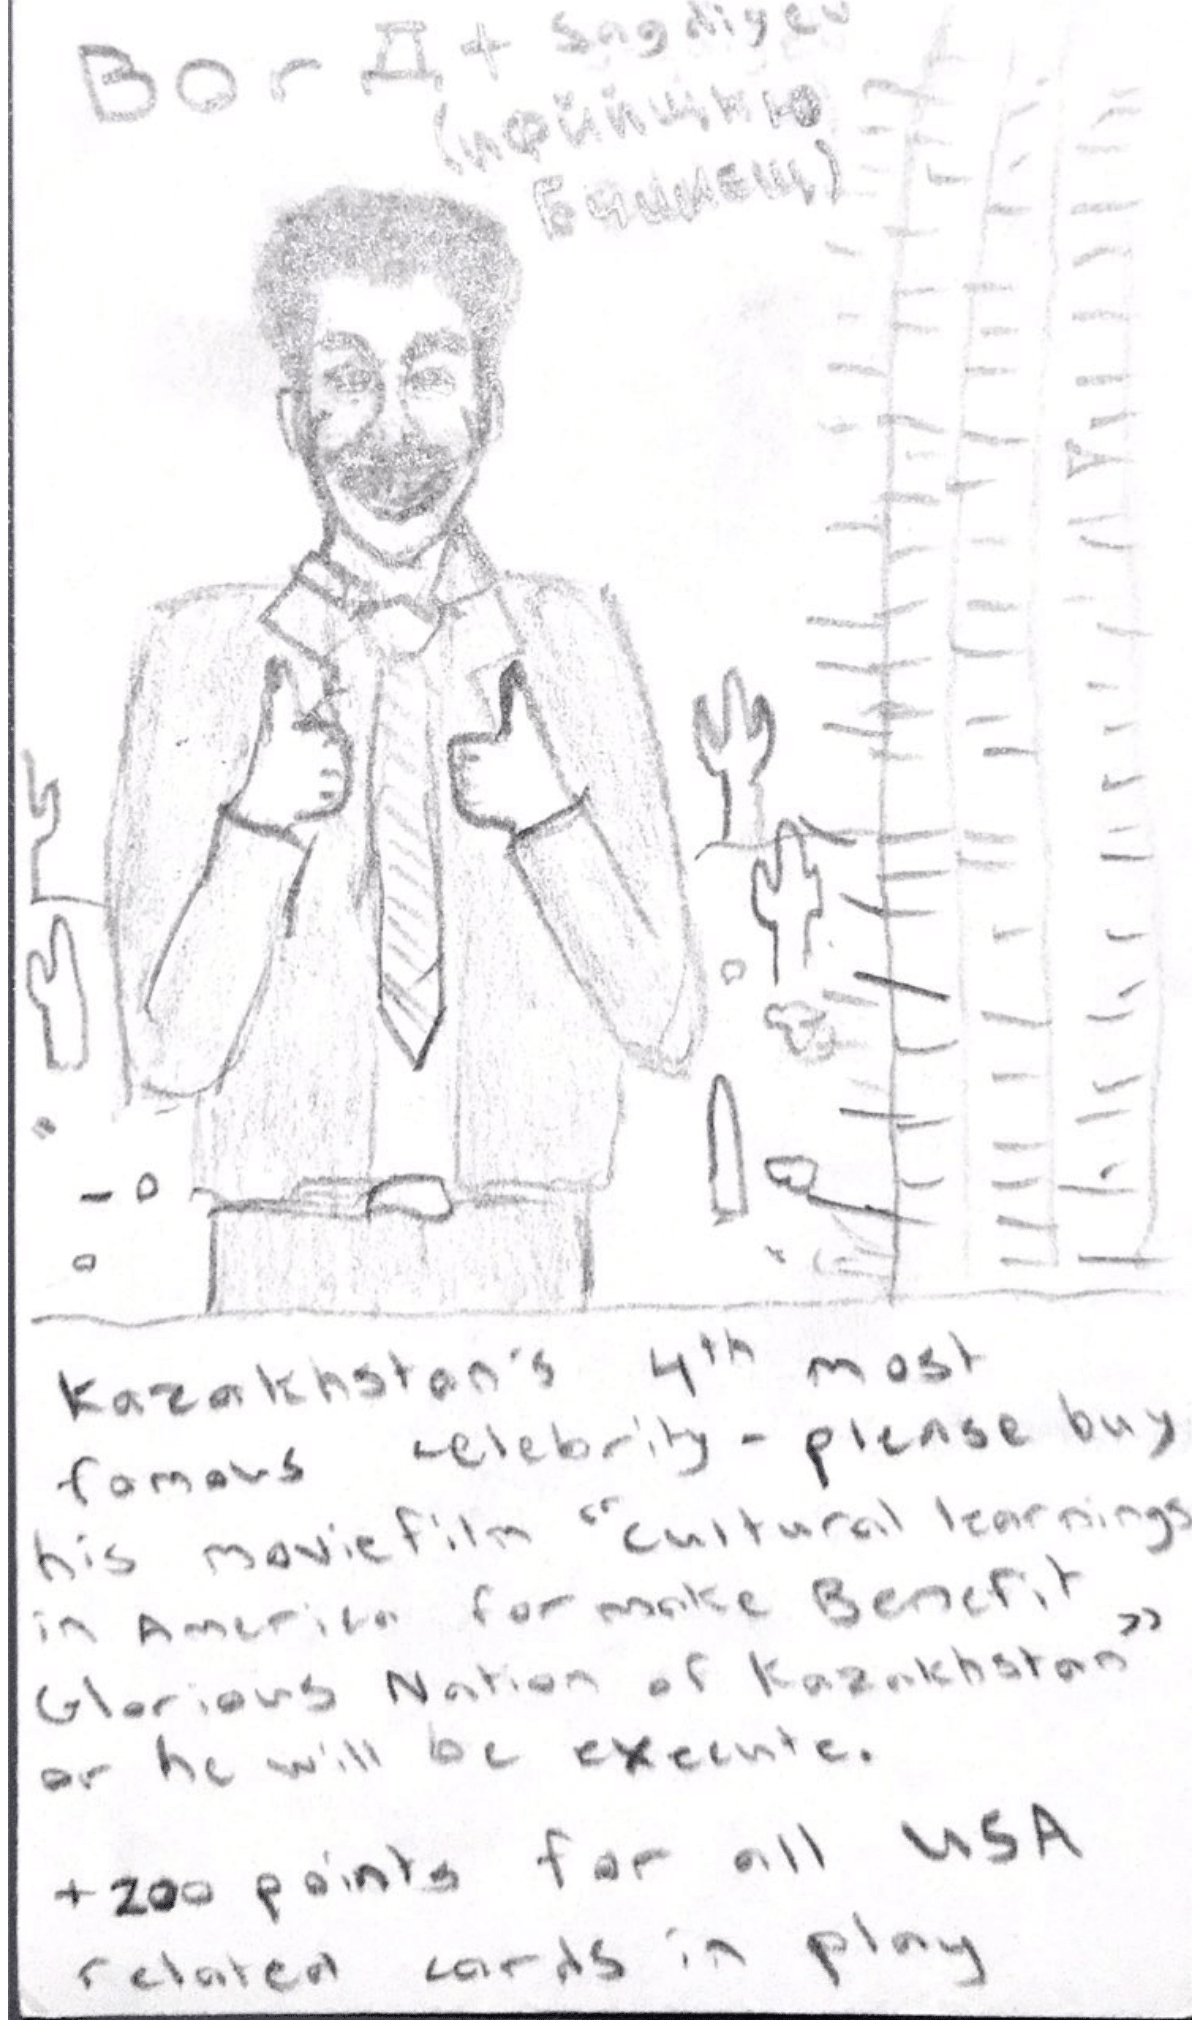 BorДt Sagdiyev
Kazakhstan's 4th most
famous celebrity - please buy
his moviefilm "Cultural learnings
in America for make Benefit
Glorious Nation of Kazakhstan"
or he will be execute.
+200 points for all USA
related cards in play